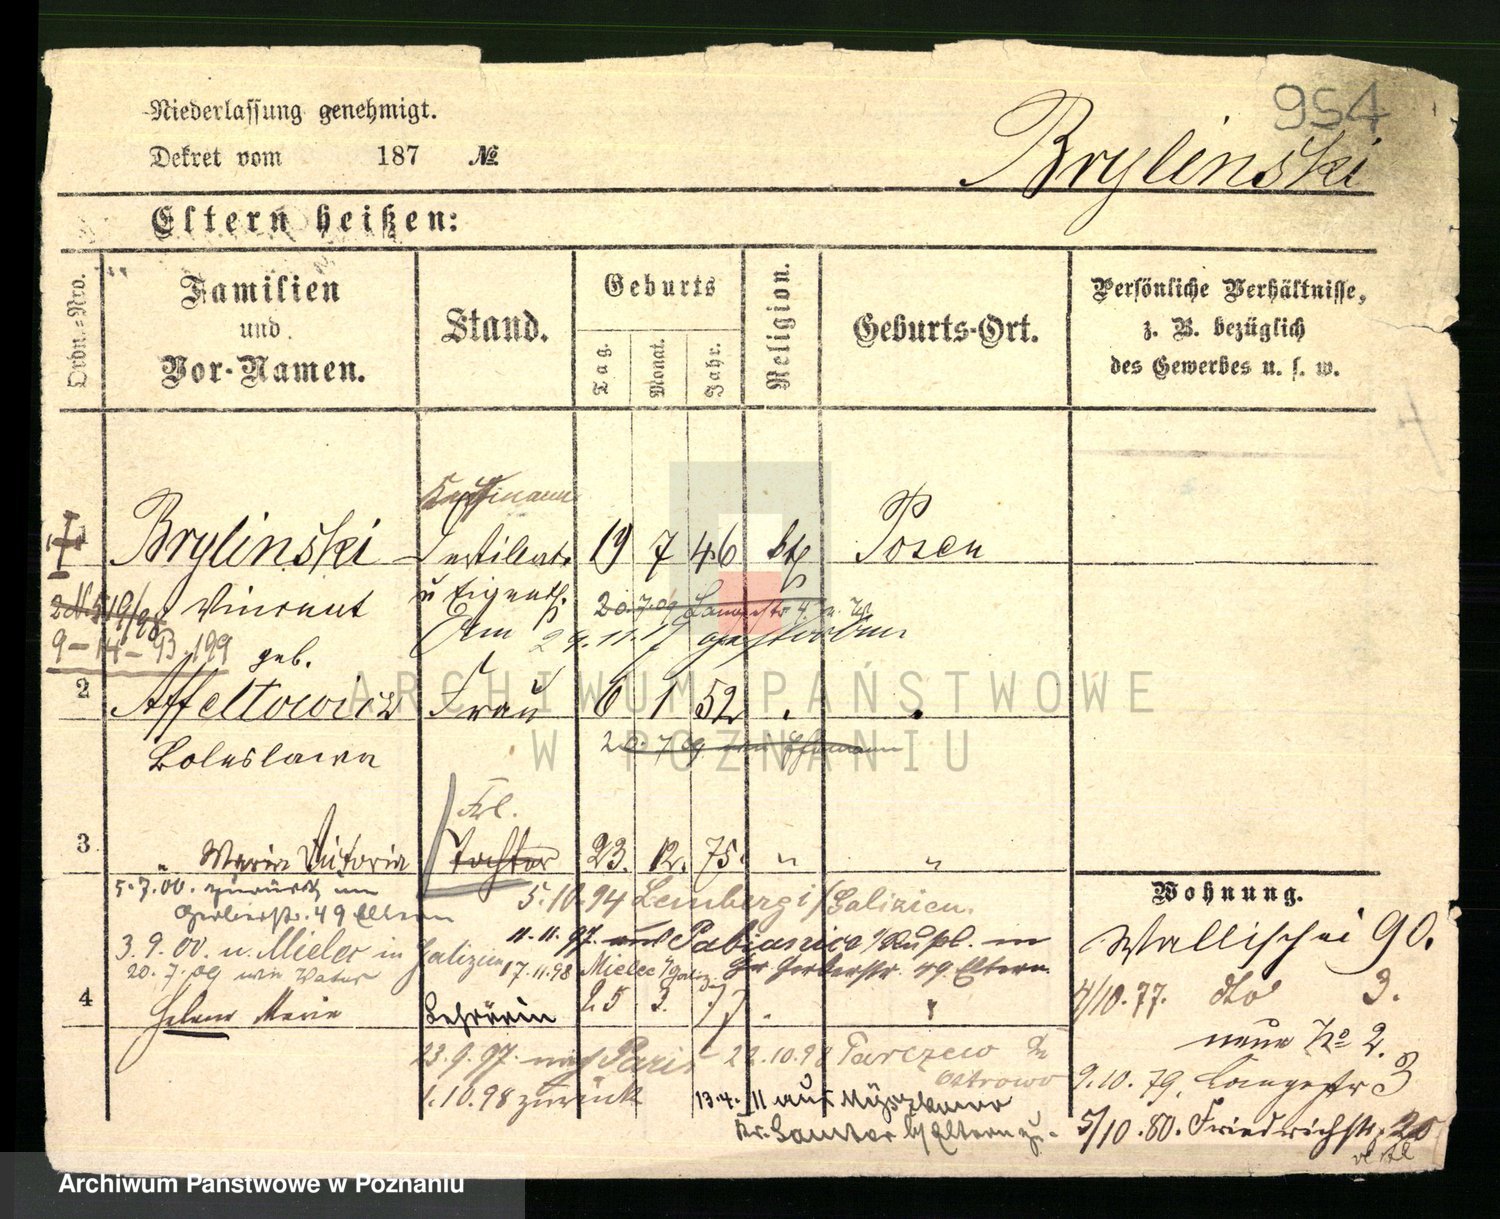 954
Niederlassung genehmigt.
Dekret vom 187 №
Brylinski
Eltern heißen:
Ordn.-Nro.
Familien
und
Vor-Namen.
Stand.
Geburts
Tag.
Monat.
Jahr.
Religion.
Geburts-Ort.
Persönliche Verhältnisse,
z. B. bezüglich
des Gewerbes u. s. w.
Kaufmann
Brylinski 19 7 46 kth Posen
Vincent u Eigenth.
20.7.09 Langestr 4
9-14-B.199 Am 29.11.17 gestorben
geb.
2 Affeltowicz Frau 6 1 52
Boleslawa
20.7.09
Frl.
3 " Maria Victoria Tochter 23. 12. 75. " "
5.7.00. zurück
Gerberstr. 49 Eltern
5.10.94 Lemberg i/Galizien.
11.11.97 aus Pabianice i/Rußl. in
3.9.00 n. Mielec in Galizien
17.11.98 Mielec i/Galiz. Gr Gerberstr. 49. Eltern
20.7.09 wie Vater
4 Helene Marie Lehrerin 25 3. 77 . "
23.9.97 nach Paris
22.10.98 Parczew
Ostrowo
1.10.98 zurück
13.4.11 aus
Kr. Samter b/Eltern
Wohnung.
Wallischei 90.
4/10.77. dto 3.
neue No 2.
9.10.79. Langestr 3
5/10.80. Friedrichstr. 20
ARCHIWUM PAŃSTWOWE
W POZNANIU
Archiwum Państwowe w Poznaniu